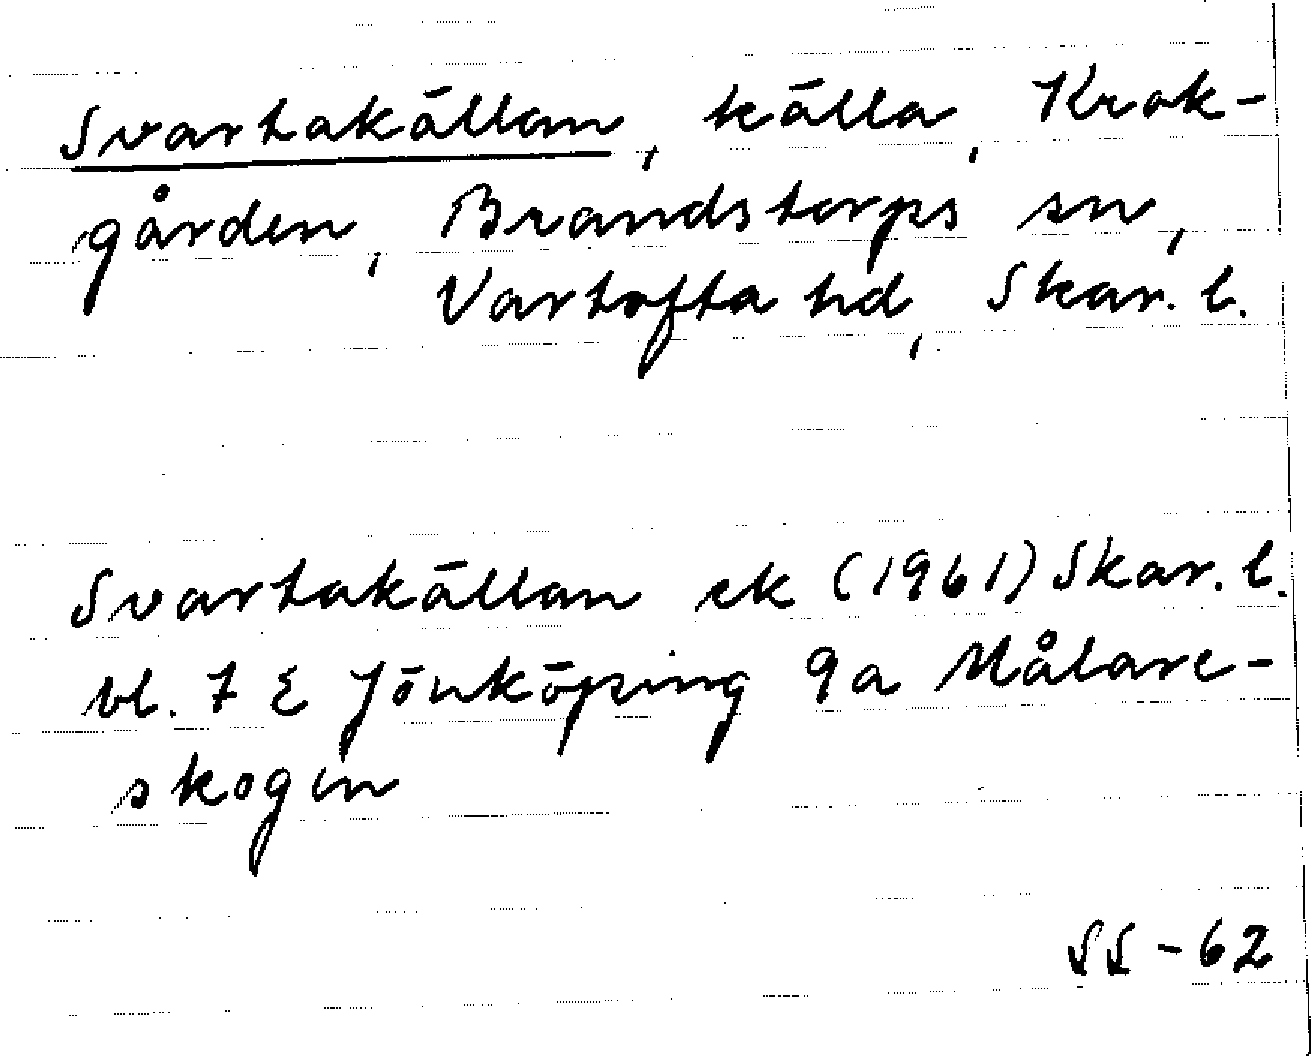 Svartakällan, källa, Krok-
gården, Brandstorps sn,
Vartofta hd, Skar. l.
Svartakällan ek (1961) Skar. l.
bl. 7 E Jönköping 9a Målare-
skogen
SS-62